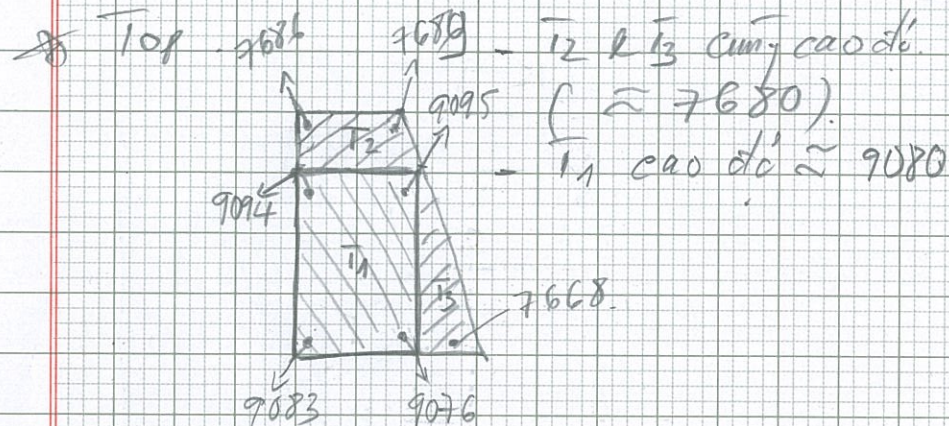 Top 7686 7689 - T2 & T3 cùng cao độ.
(≈ 7680).
9095
T2
- T1 cao độ ≈ 9080
9094
T1
T3
7668.
9083 9076